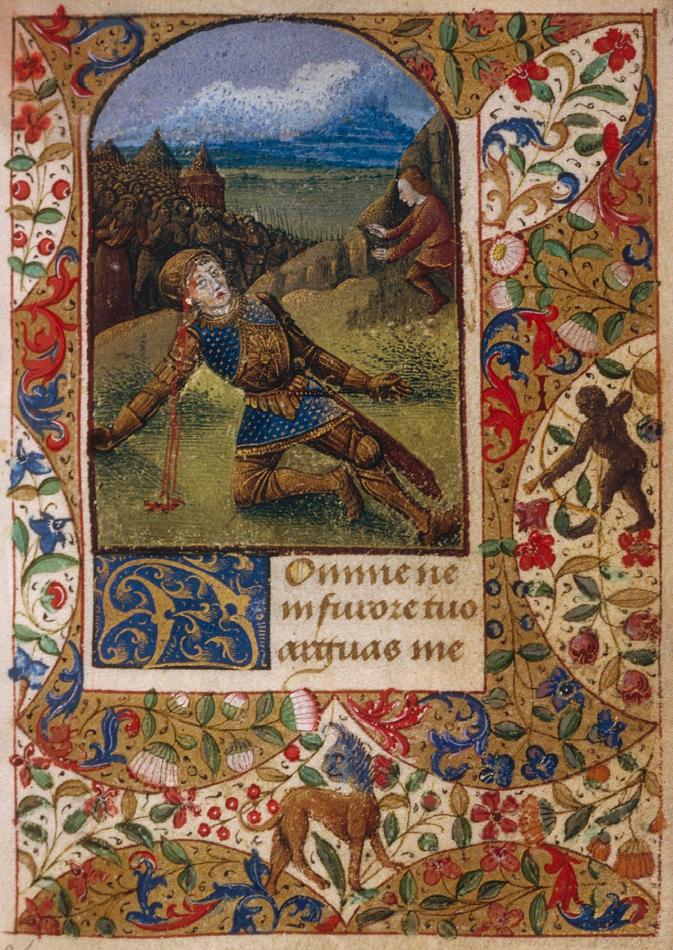 Domine ne
in furore tuo
arguas me